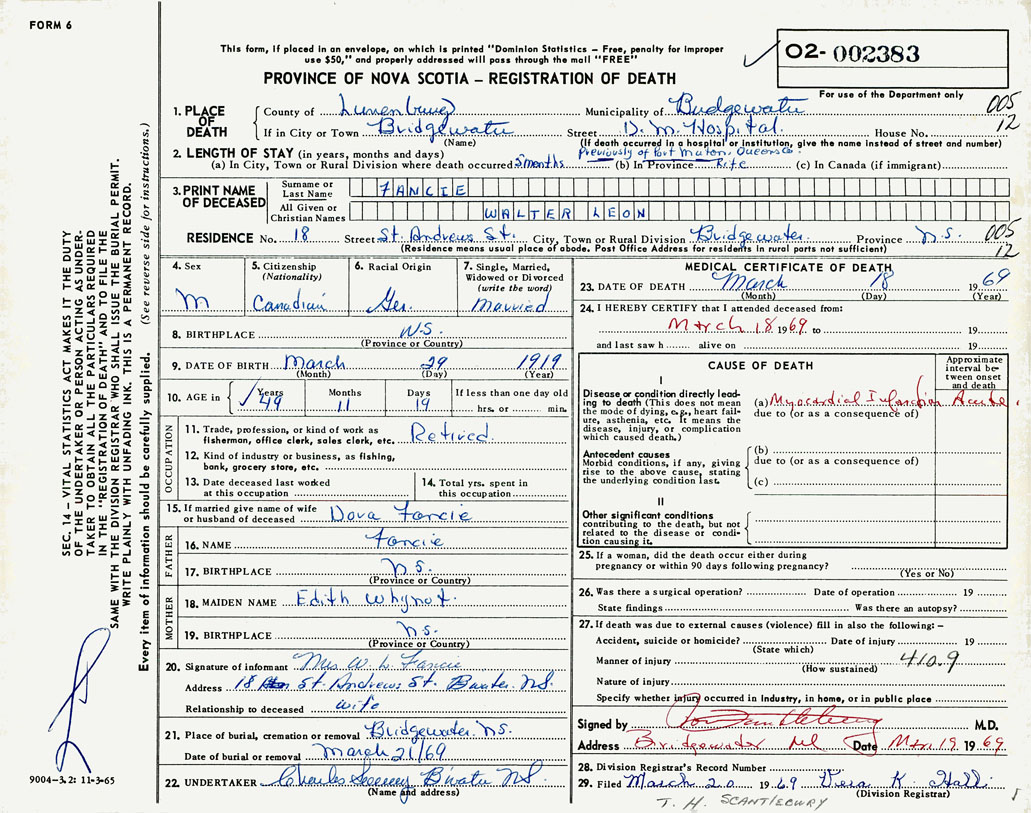 FORM 6
This form, if placed in an envelope, on which is printed "Dominion Statistics – Free, penalty for improper
use $50," and properly addressed will pass through the mail "FREE"
O2- 002383
For use of the Department only
PROVINCE OF NOVA SCOTIA – REGISTRATION OF DEATH
005
12
1. PLACE OF DEATH
County of Lunenburg Municipality of Bridgewater
If in City or Town Bridgewater Street D. M. Hospital. House No.
(Name) (If death occurred in a hospital or institution, give the name instead of street and number)
2. LENGTH OF STAY (in years, months and days) Previously of Port Mouton. Queens Co.
(a) In City, Town or Rural Division where death occurred 5 months (b) In Province Life (c) In Canada (if immigrant)
3. PRINT NAME OF DECEASED
Surname or Last Name FANCIE
All Given or Christian Names WALTER LEON
RESIDENCE No. 18 Street St. Andrews St. City, Town or Rural Division Bridgewater Province N.S. 005
12
(Residence means usual place of abode. Post Office Address for residents in rural parts not sufficient)
4. Sex
M
5. Citizenship
(Nationality)
Canadian
6. Racial Origin
Ger.
7. Single, Married,
Widowed or Divorced
(write the word)
Married
8. BIRTHPLACE N.S.
(Province or Country)
9. DATE OF BIRTH March 29 1919
(Month) (Day) (Year)
10. AGE in
Years Months Days If less than one day old
49 11 19 hrs. or min.
OCCUPATION
11. Trade, profession, or kind of work as
fisherman, office clerk, sales clerk, etc. Retired.
12. Kind of industry or business, as fishing,
bank, grocery store, etc.
13. Date deceased last worked
at this occupation
14. Total yrs. spent in
this occupation
15. If married give name of wife
or husband of deceased Dova Fancie
FATHER
16. NAME Fancie
17. BIRTHPLACE N.S.
(Province or Country)
MOTHER
18. MAIDEN NAME Edith Whynot.
19. BIRTHPLACE N.S.
(Province or Country)
20. Signature of informant Mrs W. L. Fancie
Address 18 St. Andrews St. B'water. N.S.
Relationship to deceased wife
21. Place of burial, cremation or removal Bridgewater. N.S.
Date of burial or removal March 21/69
22. UNDERTAKER Charles B'water N.S.
(Name and address)
MEDICAL CERTIFICATE OF DEATH
23. DATE OF DEATH March 18 1969
(Month) (Day) (Year)
24. I HEREBY CERTIFY that I attended deceased from:
March 18 1969 to 19
and last saw h alive on 19
CAUSE OF DEATH
Approximate
interval be-
tween onset
and death
I
Disease or condition directly lead-
ing to death (This does not mean
the mode of dying, e.g., heart fail-
ure, asthenia, etc. It means the
disease, injury, or complication
which caused death.)
(a) Myocardial Infarction Acute.
due to (or as a consequence of)
Antecedent causes
Morbid conditions, if any, giving
rise to the above cause, stating
the underlying condition last.
(b)
due to (or as a consequence of)
(c)
II
Other significant conditions
contributing to the death, but not
related to the disease or condi-
tion causing it.
25. If a woman, did the death occur either during
pregnancy or within 90 days following pregnancy?
(Yes or No)
26. Was there a surgical operation? Date of operation 19
State findings Was there an autopsy?
27. If death was due to external causes (violence) fill in also the following: –
Accident, suicide or homicide? Date of injury 19
(State which)
Manner of injury 410.9
(How sustained)
Nature of injury
Specify whether injury occurred in industry, in home, or in public place
Signed by M.D.
Address Bridgewater NS Date Mar. 19. 1969.
28. Division Registrar's Record Number
29. Filed March 20 1969 Vera K.
(Division Registrar)
T. H. SCANTLEBURY
SEC. 14 – VITAL STATISTICS ACT MAKES IT THE DUTY
OF THE UNDERTAKER OR PERSON ACTING AS UNDER-
TAKER TO OBTAIN ALL THE PARTICULARS REQUIRED
IN THE "REGISTRATION OF DEATH" AND TO FILE THE
SAME WITH THE DIVISION REGISTRAR WHO SHALL ISSUE THE BURIAL PERMIT.
WRITE PLAINLY WITH UNFADING INK. THIS IS A PERMANENT RECORD.
Every item of information should be carefully supplied. (See reverse side for instructions.)
9004–3.2: 11-3-65